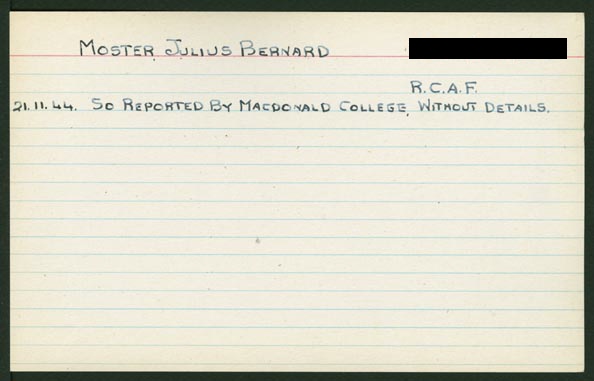 MOSTER, JULIUS BERNARD
R.C.A.F.
21.11.44. SO REPORTED BY MACDONALD COLLEGE, WITHOUT DETAILS.